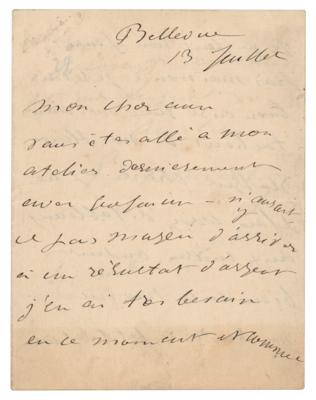 Bellevue
13 Juillet
mon cher ami
vous êtes allé a mon
atelier dernierement
avec — n'y aurait
il pas moyen d'arriver
à un résultat d'argent
j'en ai tres besoin
en ce moment et comme